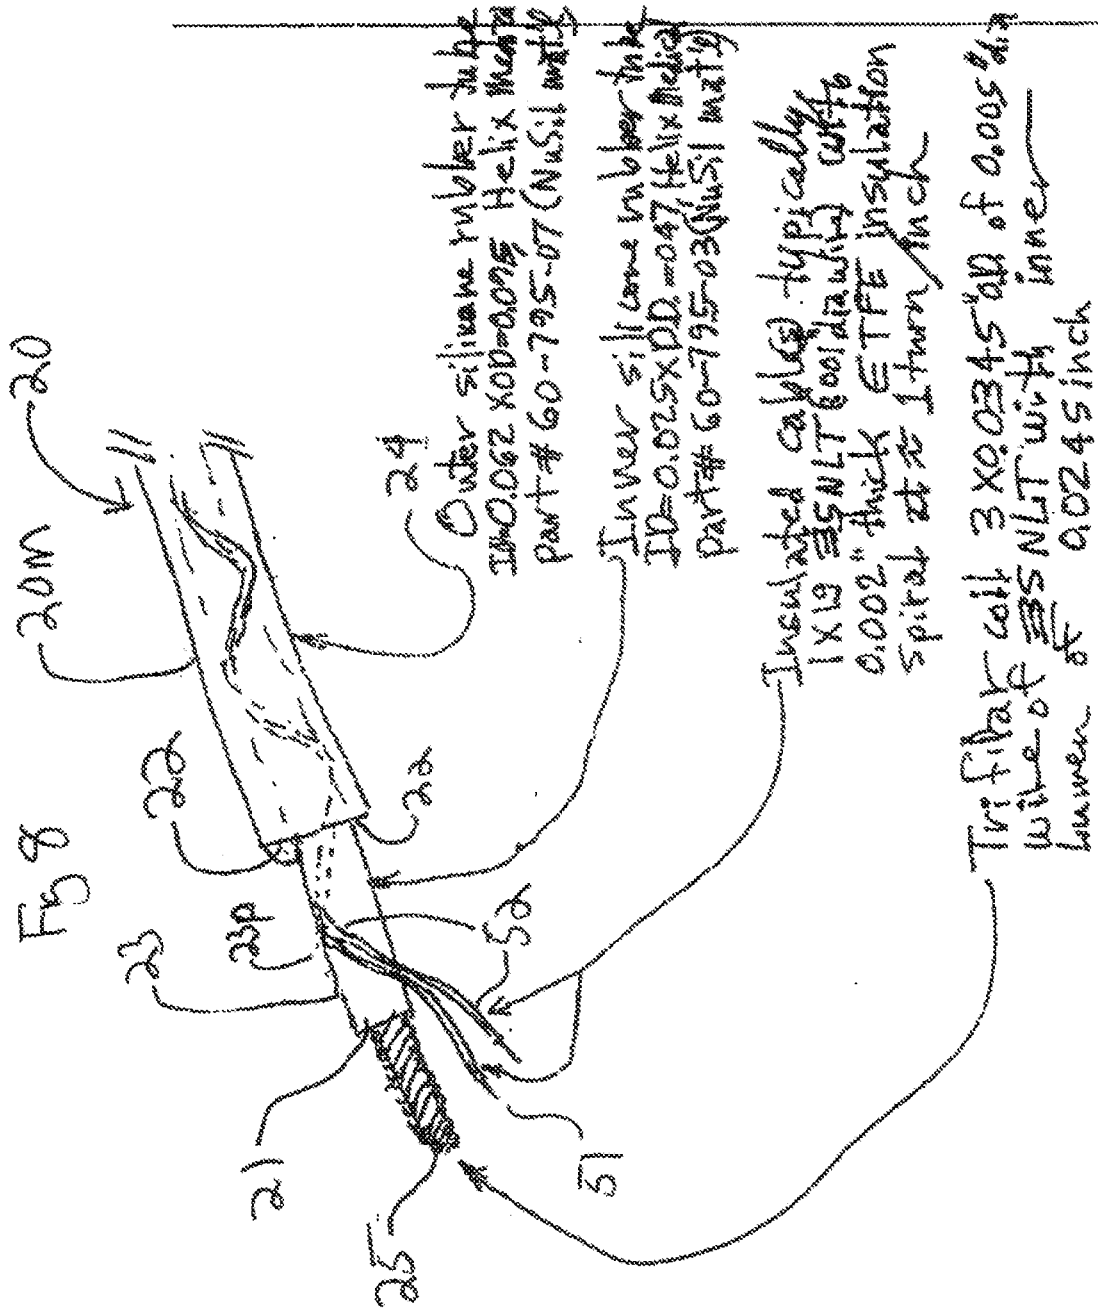 Fig 8
20M
20
23
23p
22
22
24
21
25
51
52
Outer silicone rubber tube
ID=0.062 XOD=0.095 Helix Medical
part # 60-795-07 (NuSil mat'l)
Inner silicone rubber tube
ID=0.025XOD=.047 Helix Medical
part# 60-795-03 (NuSil mat'l)
Insulated cable(s) typically
1X19 35NLT (.001 dia wire) with
0.002" thick ETFE insulation
spiral at ≈ 1 turn/inch
Trifilar coil 3 X0.0345"OD of 0.005"dia
wire of 35NLT with inner
lumen of 0.0245inch